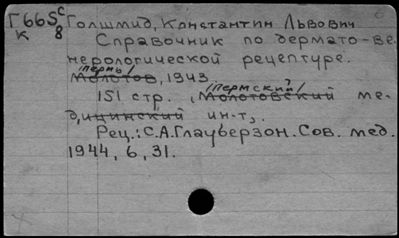 Г66S с Голшмид, Константин Львович
к 8 Справочник по дермато-ве
нерологической рецептуре.
/Пермь/
Молотов, 1943.
/Пермский/
151 стр., Молотовский ме-
дицинский ин-т,
Рец.: С.А.Глауберзон. Сов. мед.
1944, 6, 31.